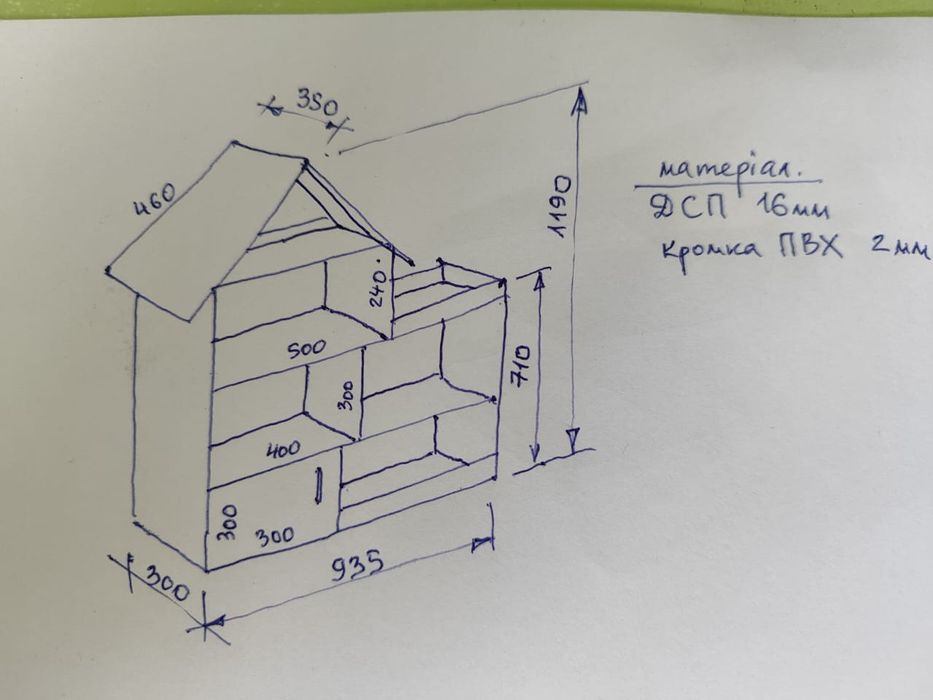 350
460
1190
матеріал.
ДСП 16мм
кромка ПВХ 2мм
240
500
710
300
400
300
300
300
935